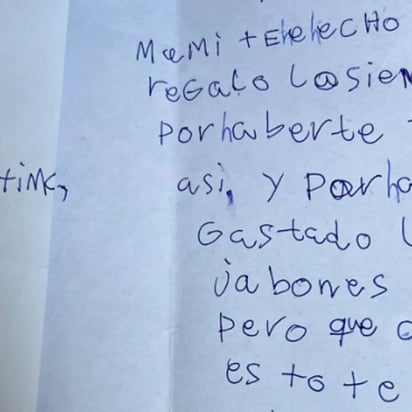 MaMi + EhehecHo
reGalo Losien
porhaberte
tiMK,
asi, y Porha
Gastado L
jabones
pero que
es to te